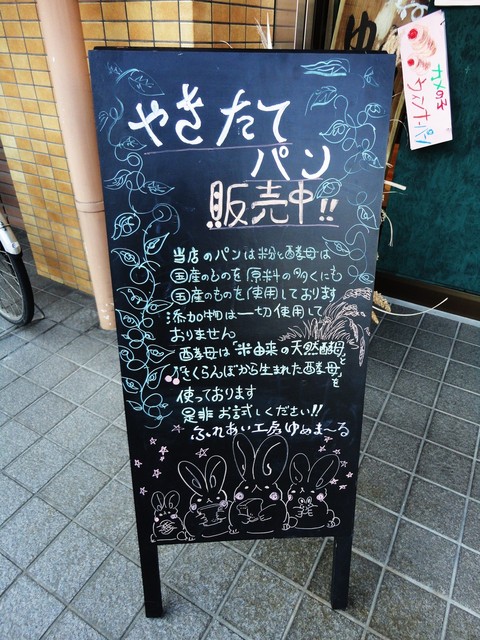 やきたて
パン
販売中!!
当店のパンは粉と酵母は
国産のものを原料の多くにも
国産のものを使用しております
添加物は一切使用して
おりません
酵母は「米由来の天然酵母」と
「さくらんぼから生まれた酵母」を
使っております
是非お試しください!!
ふれあい工房ゆめま～る
カメの子
メロンパン
ゆ